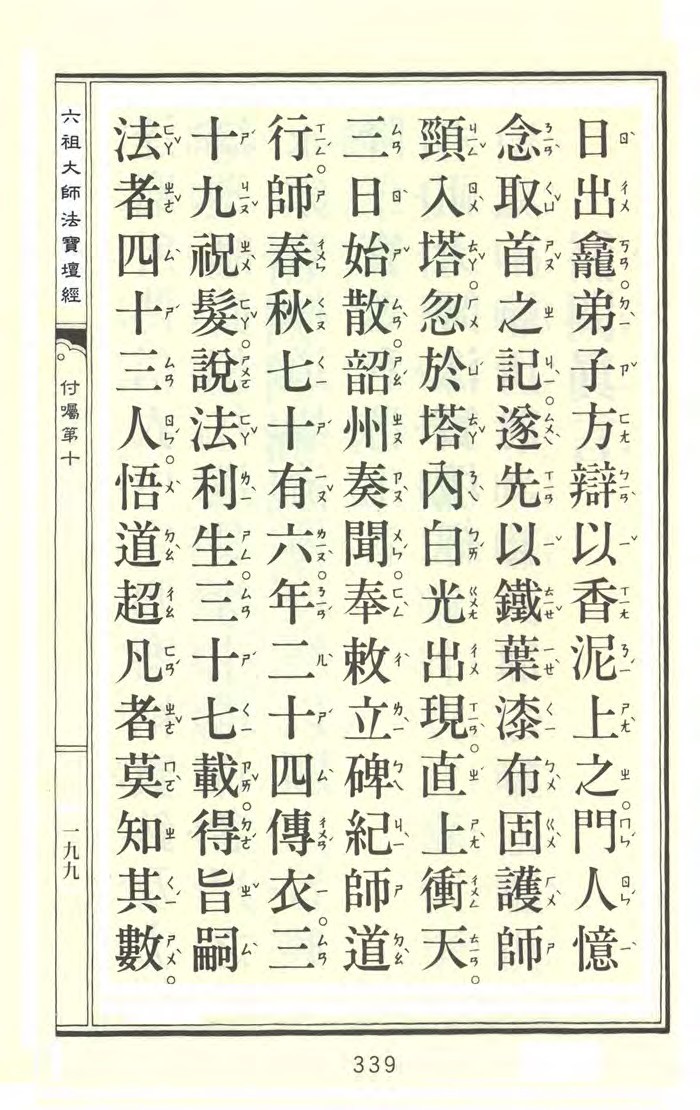 日出龕。弟子方辯以香泥上之。門人憶
念取首之記。遂先以鐵葉漆布固護師
頸入塔。忽於塔內白光出現。直上衝天。
三日始散。韶州奏聞。奉敕立碑紀師道
行。師春秋七十有六。年二十四傳衣。三
十九祝髮。說法利生。三十七載。得旨嗣
法者四十三人。悟道超凡者莫知其數。
六祖大師法寶壇經
付囑第十
一九九
339